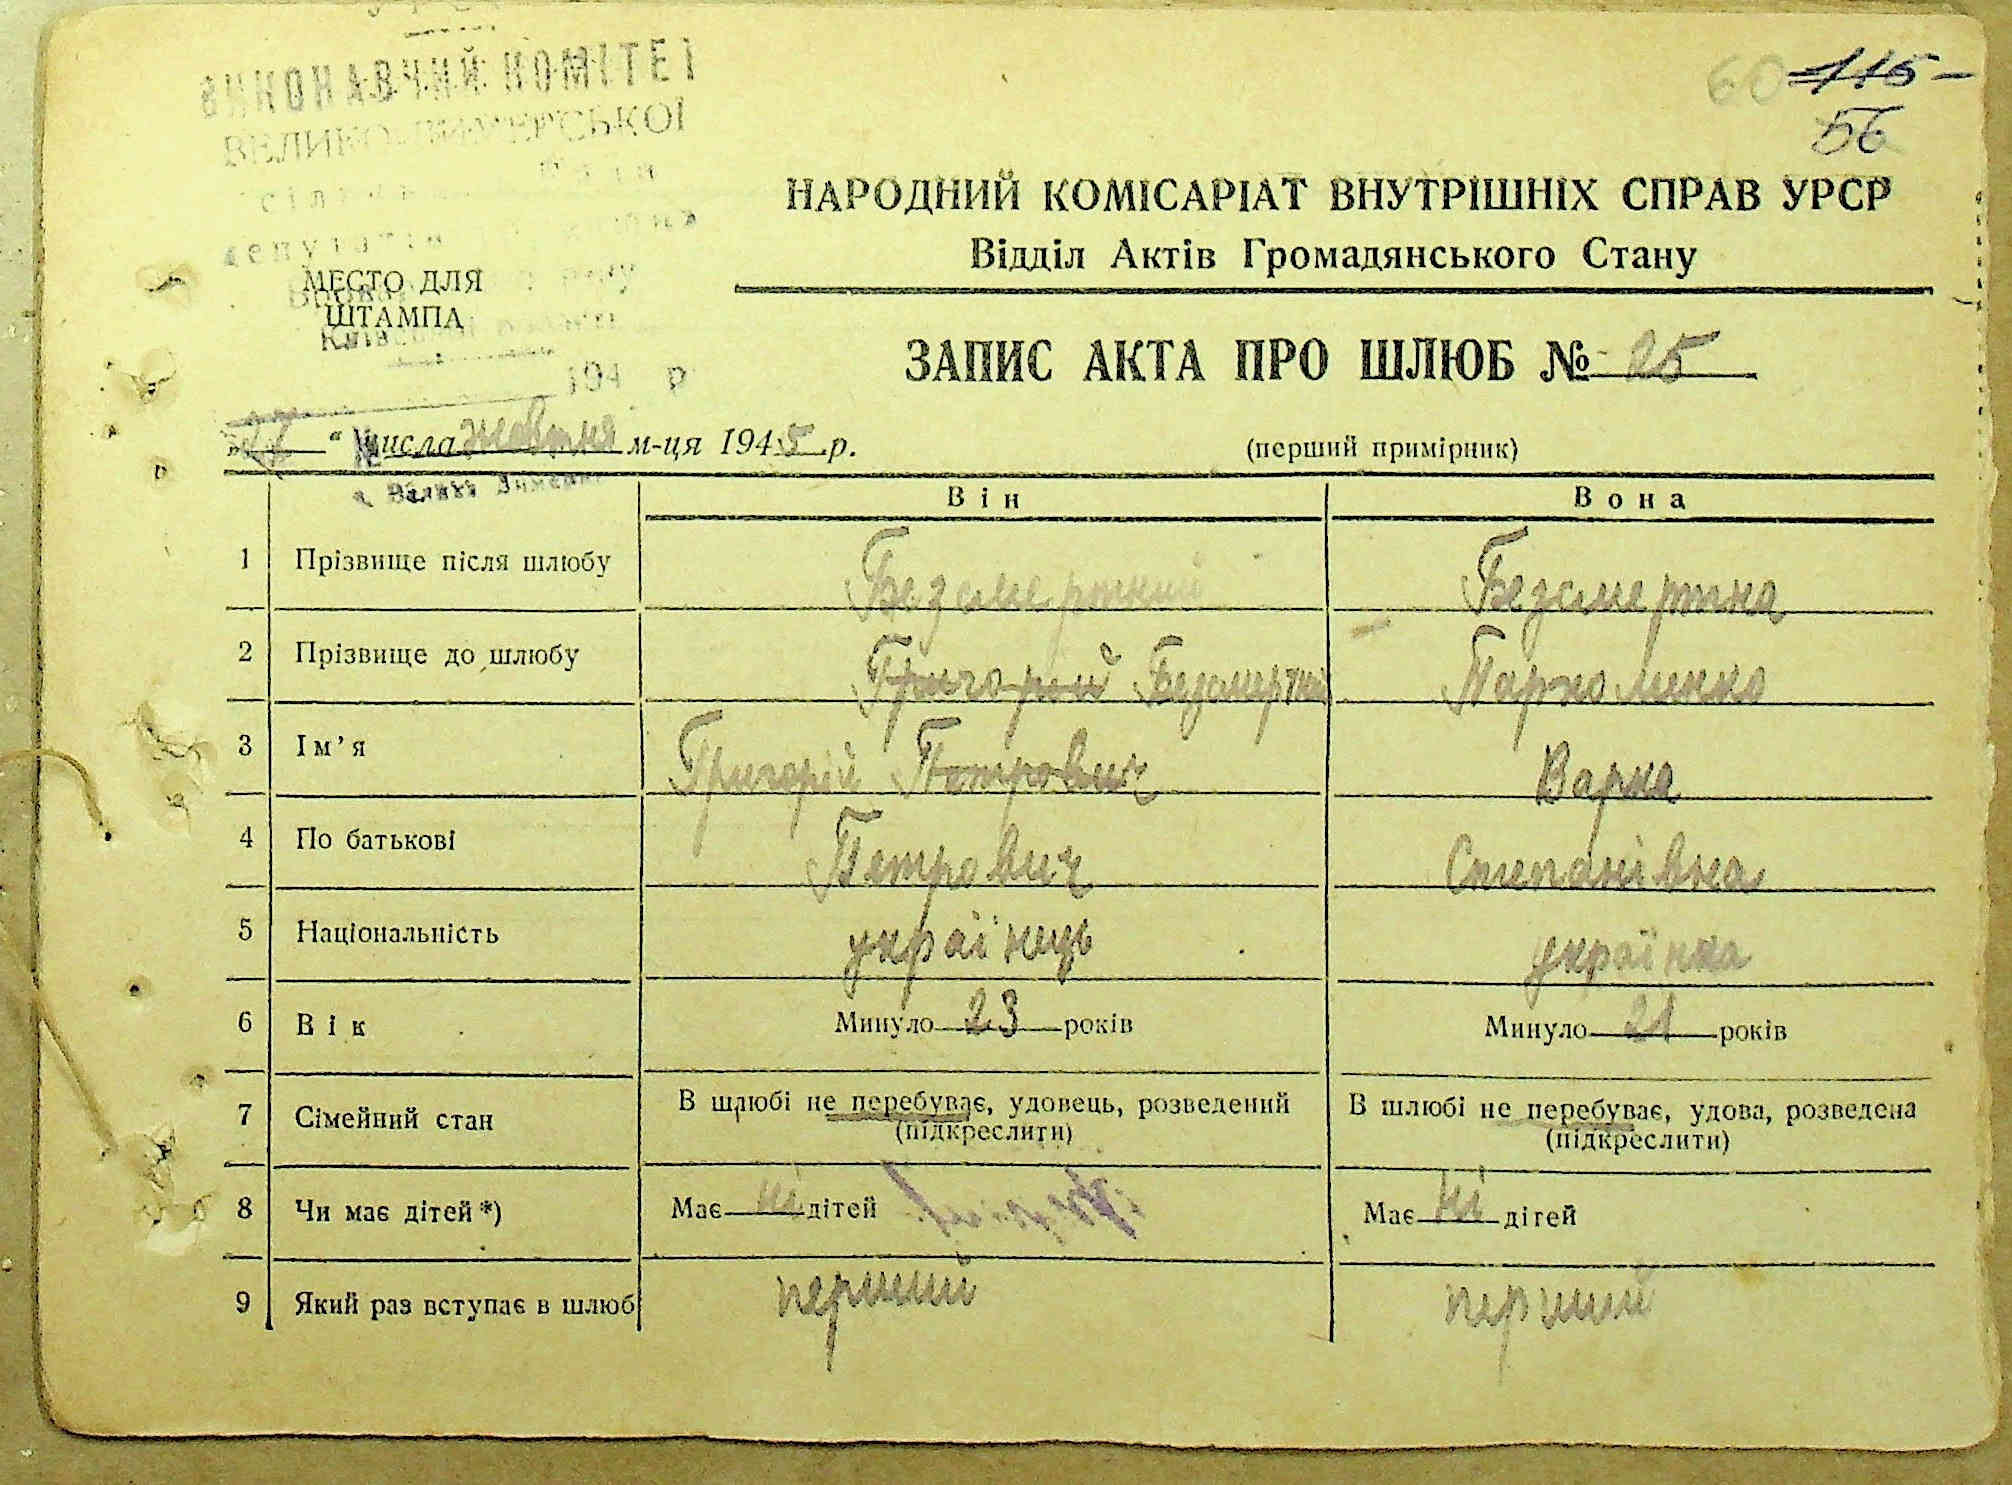 УРСР
ВИКОНАВЧИЙ КОМІТЕТ
ВЕЛИКО-ДИМЕРСЬКОЇ
депутатів
МЕСТО ДЛЯ
ШТАМПА
194 р
60 115 -
56
НАРОДНИЙ КОМІСАРІАТ ВНУТРІШНІХ СПРАВ УРСР
Відділ Актів Громадянського Стану
ЗАПИС АКТА ПРО ШЛЮБ № 25
" числа жовтня м-ця 1945 р.
(перший примірник)
Він Вона
1 Прізвище після шлюбу Безсмертний Безсмертна
2 Прізвище до шлюбу Григорий Безсмертний Пархоменко
3 Ім'я Григорій Петрович Варка
4 По батькові Петрович Степанівна
5 Національність українець українка
6 Вік Минуло 23 років Минуло 21 років
7 Сімейний стан В шлюбі не перебуває, удовець, розведений В шлюбі не перебуває, удова, розведена
(підкреслити) (підкреслити)
8 Чи має дітей*) Має ні дітей Має ні дітей
9 Який раз вступає в шлюб перший перший